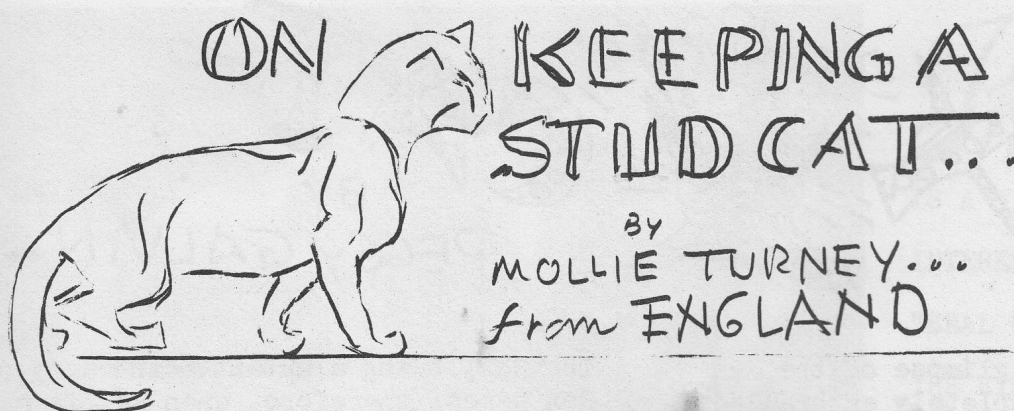 ON KEEPING A
STUD CAT...
BY
MOLLIE TURNEY...
from ENGLAND